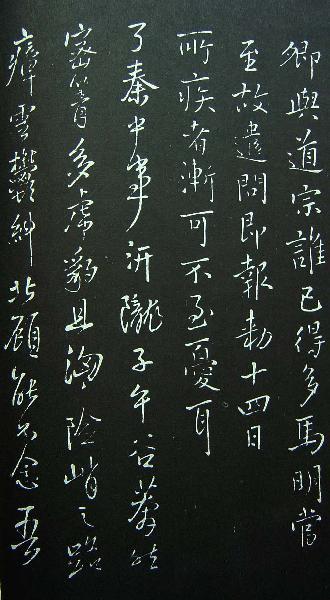 卿與道宗誰已得多馬明當
至故遣問即報勅十四日
所疾者漸可不至憂耳
了秦中汧隴子午谷
密箐多虎豹且洶險峭之路
瘴雲鬱糾北顧能不念吾